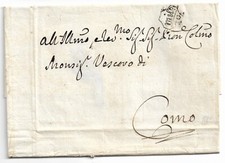 All'Illmo, e Rev.mo Sig.r Sig.r Pron Colmo
Monsig.r Vescovo di
Como